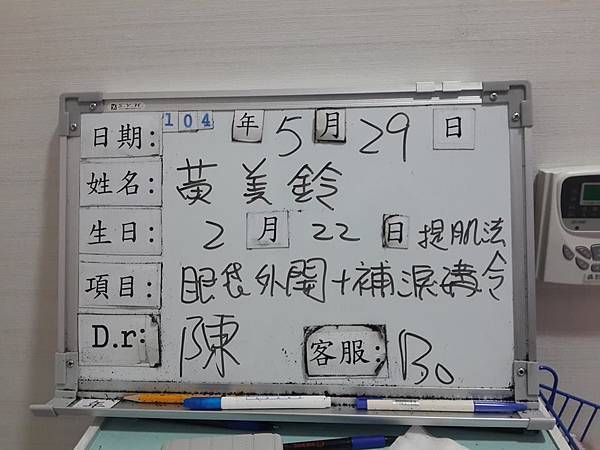 S.Y.H
日期: 104 年 5 月 29 日
姓名: 黃美鈴
生日: 2 月 22 日 提肌法
項目: 眼袋外開+補淚溝
D.r: 陳 客服: Bo